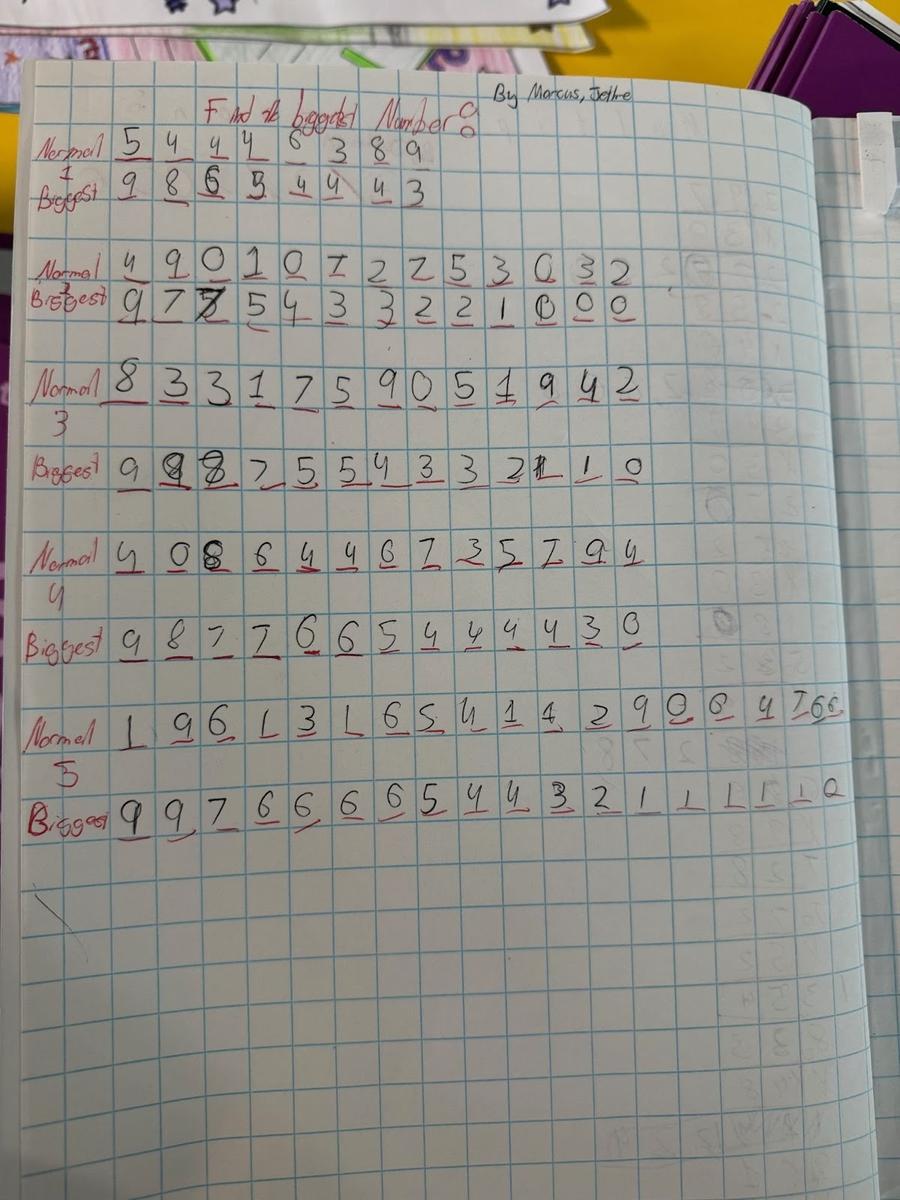 By Marcus, Jethre
Find the biggest Number:
Normal 5 4 4 4 6 3 8 9
1
Biggest 9 8 6 5 4 4 4 3
Normal 4 9 0 1 0 7 2 2 5 3 0 3 2
Biggest 9 7 5 5 4 3 3 2 2 1 0 0 0
Normal 8 3 3 1 7 5 9 0 5 1 9 4 2
3
Biggest 9 9 8 7 5 5 4 3 3 2 1 1 0
Normal 4 0 8 6 4 4 6 7 3 5 7 9 4
4
Biggest 9 8 7 7 6 6 5 4 4 4 4 3 0
Normal 1 9 6 1 3 1 6 5 4 1 1 2 9 0 0 4 7 6 6
5
Biggest 9 9 7 6 6 6 6 5 4 4 3 2 1 1 1 1 1 0